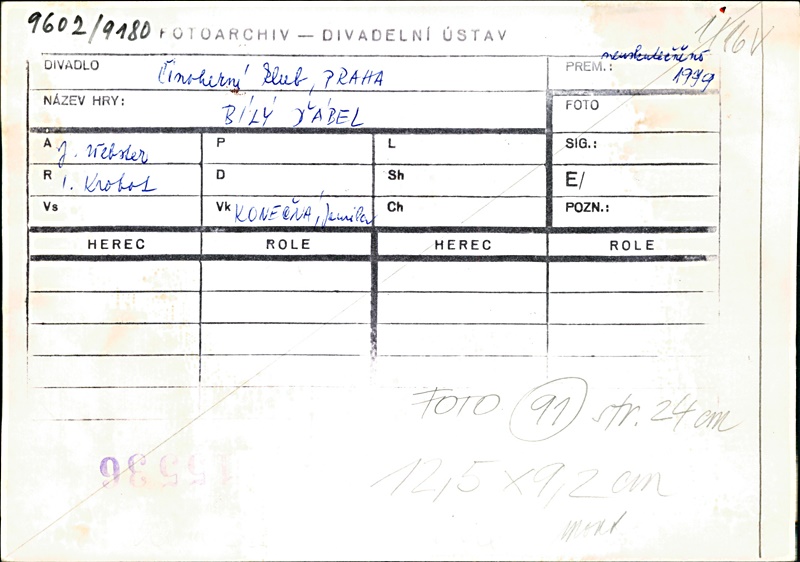 9602/9180 FOTOARCHIV — DIVADELNÍ ÚSTAV
DIVADLO Činoherní klub, PRAHA
PREM.: neuskutečněno 1999
NÁZEV HRY: BÍLÝ ĎÁBEL
FOTO
A J. Webster P L SIG.:
R I. Krobot D Sh E/
Vs Vk KONEČNÁ, Jarmila Ch POZN.:
HEREC ROLE HEREC ROLE
FOTO 91 str. 24 cm
12,5 x 9,2 cm